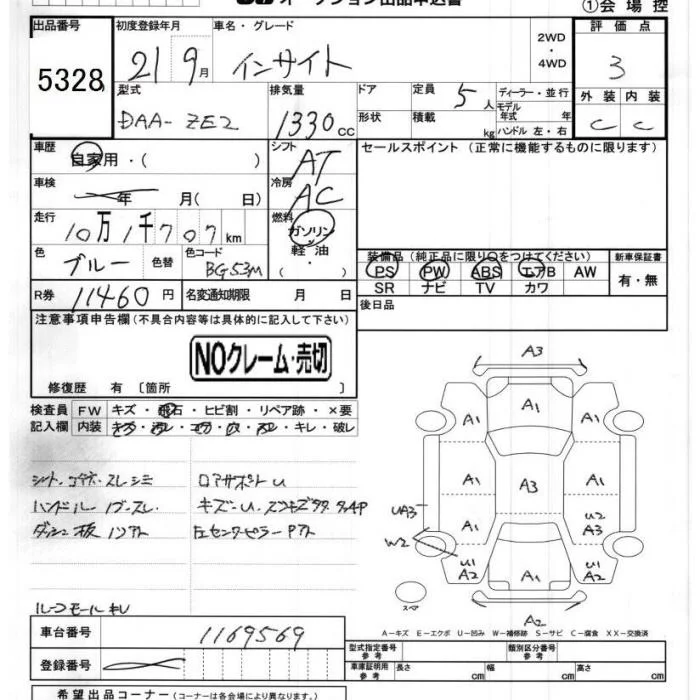 オークション出品申込書
①会場控
出品番号
5328
初度登録年月
21 9月
車名・グレード
インサイト
2WD
・
4WD
評価点
3
型式
DAA-ZE2
排気量
1330cc
ドア
定員
5人
ディーラー・並行
モデル
年式 年
形状
積載
kg
ハンドル 左・右
外装 内装
C C
車歴
自家用・( )
シフト
AT
セールスポイント (正常に機能するものに限ります)
車検
年 月( 日)
冷房
AC
走行
10万1千707km
燃料
ガソリン
・
軽油
( ・ )
色
ブルー
色替
色コード
BG53M
装備品(純正品に限り○をつけてください)
PS PW ABS エアB AW
SR ナビ TV カワ
新車保証書
有・無
R券
11460円
名変通知期限 月 日
後日品
注意事項申告欄(不具合内容等は具体的に記入して下さい)
NOクレーム・売切
修復歴 有〔箇所 〕
検査員
記入欄
FW キズ・飛石・ヒビ割・リペア跡・×要
内装 キズ・汚レ・コゲ・穴・スレ・キレ・破レ
シート・コゲ穴・スレ・シミ
ロアサポートU
ハンドル ノブ・スレ
ダッシュ板
左センターピラー
ルーフモールキレ
A3
A1
A1 A1
A1 A3 A1
UA3
W2
A1
U2
A3
U1
A2
A1
U1
A2
スペア
A2
A-キズ E-エクボ U-凹み W-補修跡 S-サビ C-腐食 XX-交換済
車台番号
1169569
登録番号
型式指定番号
参考
類別区分番号
参考
車庫証明用
参考
長さ cm 幅 cm 高さ cm
希望出品コーナー(コーナーは各会場により異なります。)